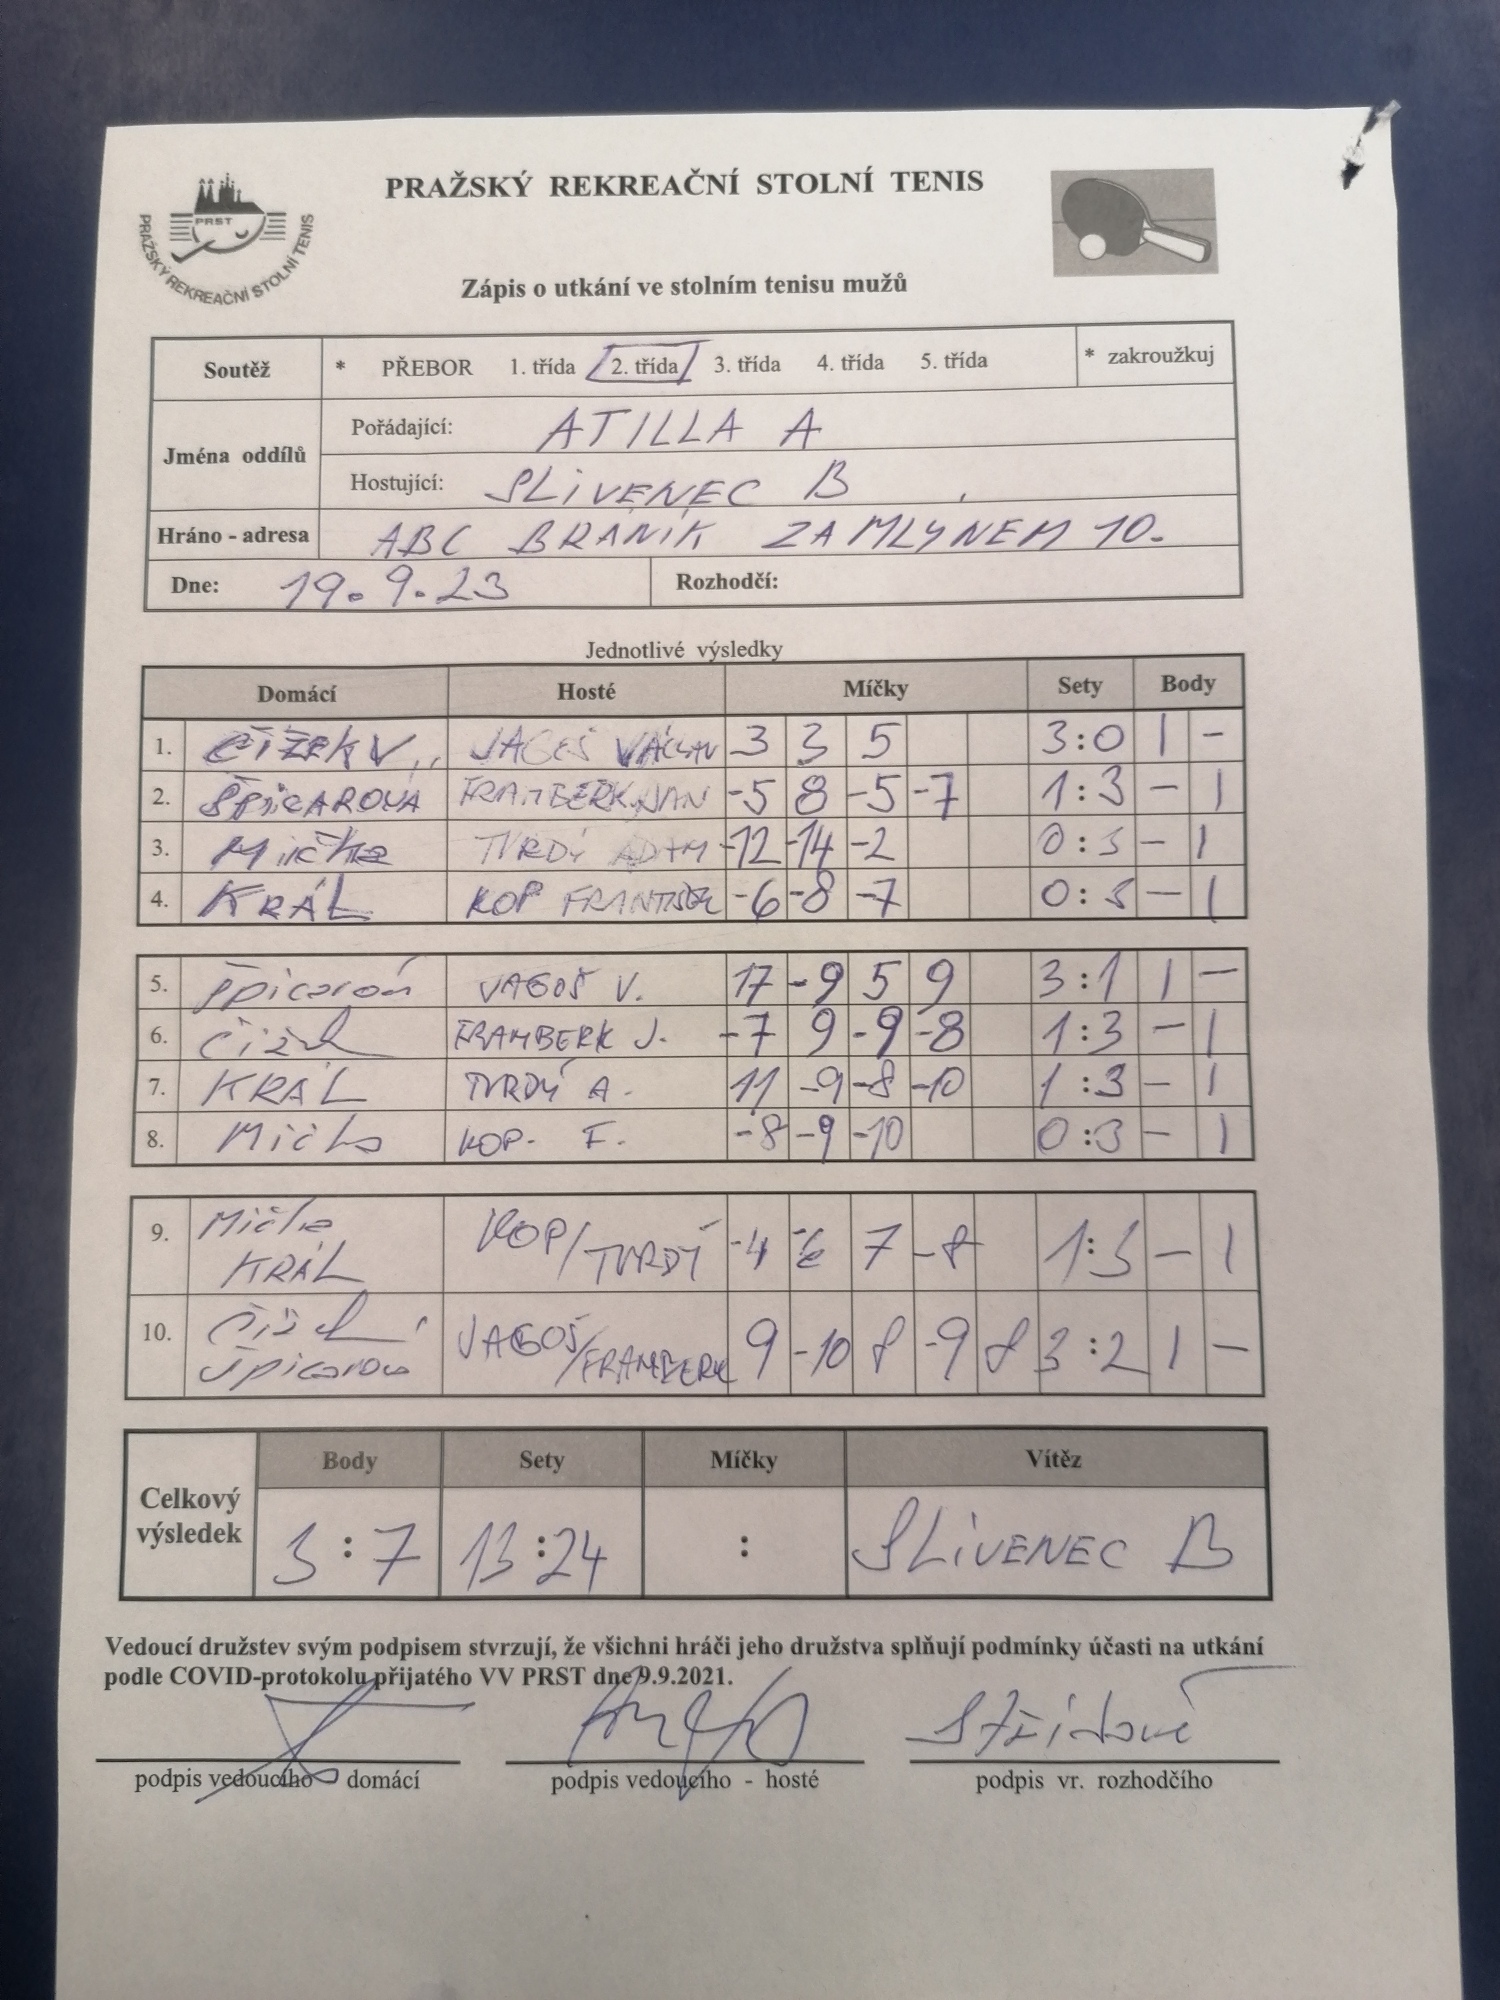 PRAŽSKÝ REKREAČNÍ STOLNÍ TENIS
PRST
PRAŽSKÝ REKREAČNÍ STOLNÍ TENIS
Zápis o utkání ve stolním tenisu mužů
Soutěž * PŘEBOR 1. třída 2. třída 3. třída 4. třída 5. třída * zakroužkuj
Jména oddílů
Pořádající: ATILLA A
Hostující: SLIVENEC B
Hráno - adresa ABC BRÁNÍK ZA MLÝNEM 10.
Dne: 19.9.23 Rozhodčí:
Jednotlivé výsledky
Domácí Hosté Míčky Sety Body
1. ČÍŽEK V. JAGOŠ VÁCLAV 3 3 5 3:0 1 -
2. ŠPICAROVÁ FRAMBERK JAN -5 8 -5 -7 1:3 - 1
3. Mička TVRDÝ ADAM -12 -14 -2 0:3 - 1
4. KRÁL KOP FRANTIŠEK -6 -8 -7 0:3 - 1
5. Špicarová JAGOŠ V. 17 -9 5 9 3:1 1 -
6. Čížek FRAMBERK J. -7 9 -9 -8 1:3 - 1
7. KRÁL TVRDÝ A. 11 -9 -8 -10 1:3 - 1
8. Mička KOP. F. -8 -9 -10 0:3 - 1
9. Mička KOP/TVRDÝ -4 -6 7 -8 1:3 - 1
KRÁL
10. Čížek JAGOŠ/FRAMBERK 9 -10 8 -9 8 3:2 1 -
Špicarová
Celkový výsledek
Body Sety Míčky Vítěz
3:7 13:24 : SLIVENEC B
Vedoucí družstev svým podpisem stvrzují, že všichni hráči jeho družstva splňují podmínky účasti na utkání
podle COVID-protokolu přijatého VV PRST dne 9.9.2021.
podpis vedoucího domácí podpis vedoucího - hosté podpis vr. rozhodčího